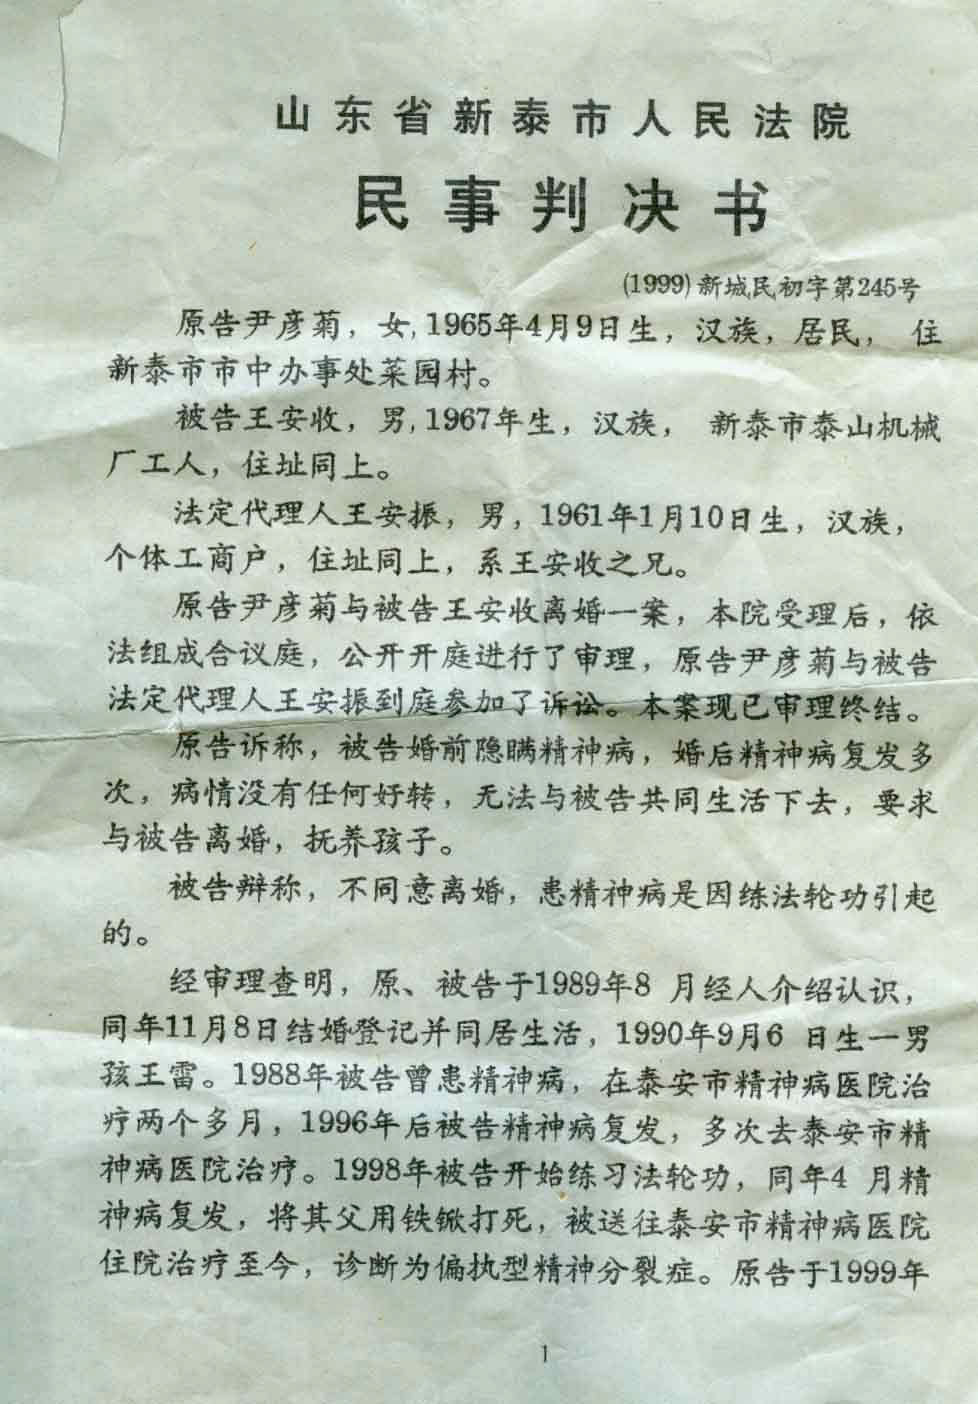 山东省新泰市人民法院
民事判决书
(1999)新城民初字第245号
原告尹彦菊，女，1965年4月9日生，汉族，居民， 住
新泰市市中办事处菜园村。
被告王安收，男，1967年生，汉族， 新泰市泰山机械
厂工人，住址同上。
法定代理人王安振，男，1961年1月10日生，汉族，
个体工商户，住址同上，系王安收之兄。
原告尹彦菊与被告王安收离婚一案，本院受理后，依
法组成合议庭，公开开庭进行了审理，原告尹彦菊与被告
法定代理人王安振到庭参加了诉讼。本案现已审理终结。
原告诉称，被告婚前隐瞒精神病，婚后精神病复发多
次，病情没有任何好转，无法与被告共同生活下去，要求
与被告离婚，抚养孩子。
被告辩称，不同意离婚，患精神病是因练法轮功引起
的。
经审理查明，原、被告于1989年8 月经人介绍认识，
同年11月8日结婚登记并同居生活，1990年9月6 日生一男
孩王雷。1988年被告曾患精神病，在泰安市精神病医院治
疗两个多月，1996年后被告精神病复发，多次去泰安市精
神病医院治疗。1998年被告开始练习法轮功，同年4 月精
神病复发，将其父用铁锨打死，被送往泰安市精神病医院
住院治疗至今，诊断为偏执型精神分裂症。原告于1999年
1